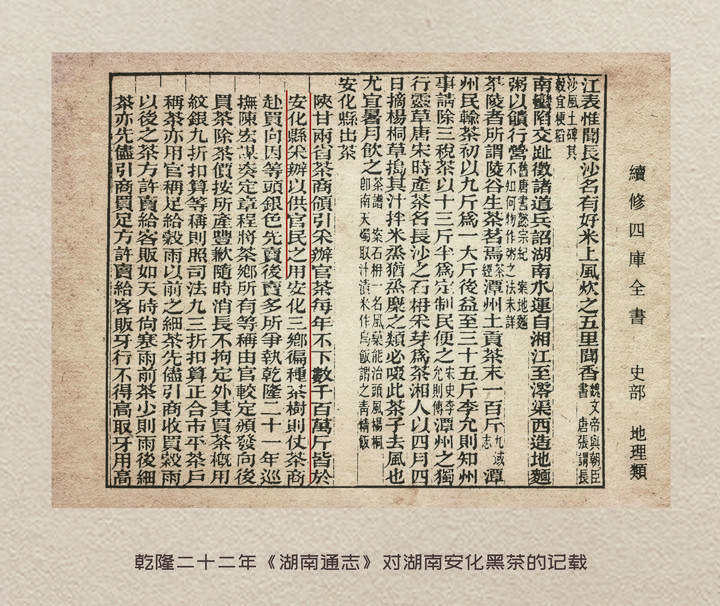 續修四庫全書 史部 地理類
江表惟聞長沙名有好米上風炊之五里聞香魏文帝與朝臣書 唐張謂長
沙風土碑其穀宜秔稻
南蠻陷交趾徵諸道兵詔湖南水運自湘江至澪渠西造地麵
粥以饋行營舊唐書懿宗紀 案地麵不如何物作粥之法未詳
茶陵者所謂陵谷生茶茗焉茶經潭州土貢茶末一百斤九域志潭
州民輸茶初以九斤爲一大斤後益至三十五斤李允則知州
事請除三稅茶以十三斤半爲定制民便之宋史李允則傳潭州之獨
行靈草唐宋時產茶名長沙之石枏采芽爲茶湘人以四月四
日摘楊桐草搗其汁拌米蒸猶蒸糜之類必啜此茶子去風也
尤宜暑月飲之茶譜 案石枏一名風藥能治頭風楊桐卽南天燭取汁漬米作烏飯謂之靑精飯
安化縣出茶
陝甘兩省茶商領引采辦官茶每年不下數千百萬斤皆於
安化縣采辦以供官民之用安化三鄉徧種茶樹則仗茶商
赴買向因等頭銀色先賣後賣多所爭執乾隆二十一年巡
撫陳宏謀奏定章程將茶鄉所有等稱由官較定頒發向後
買茶除茶價按所產豐歉隨時消長不拘定外其買茶槪用
紋銀九折扣算等稱則照司法九三折扣算正合市平茶戶
稱茶亦用官稱足給穀雨以前之細茶先儘引商收買穀雨
以後之茶方許賣給客販如天時尙寒雨前茶少則雨後細
茶亦先儘引商買足方許賣給客販牙行不得高取牙用高
乾隆二十二年《湖南通志》对湖南安化黑茶的记载